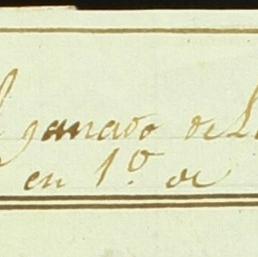 l ganado de L
en 1º de